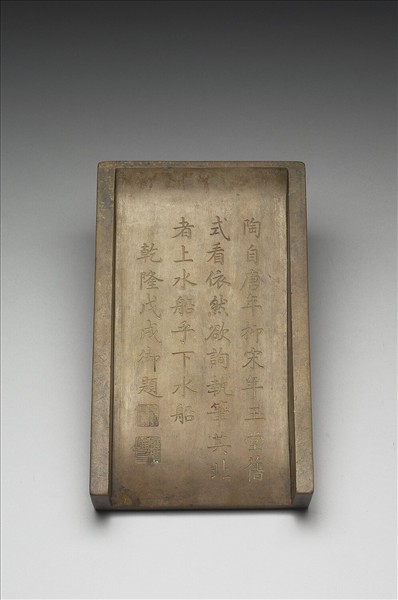 陶自唐年抑宋年舊
式看依然欲詢執筆其
者上水船乎下水船
乾隆戊戌御題